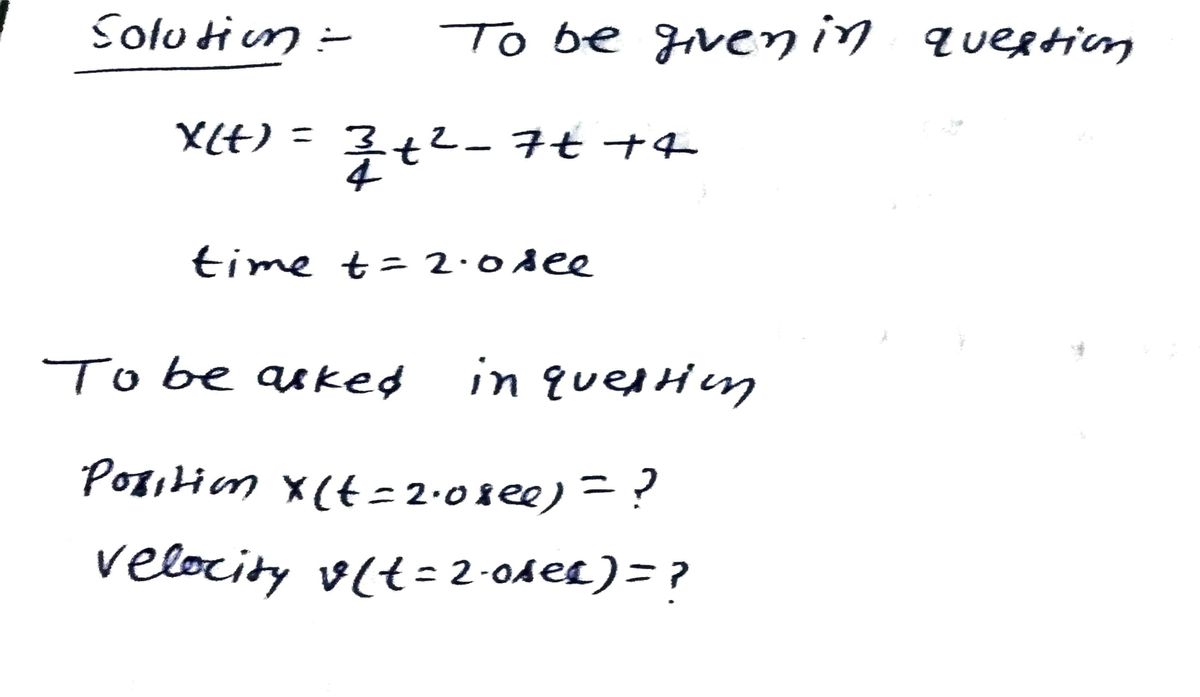 Solution :- To be given in question
x(t) = 3/4 t² - 7t + 4
time t = 2.0 sec
To be asked in question
Position x(t = 2.0 sec) = ?
velocity v(t = 2.0 sec) = ?